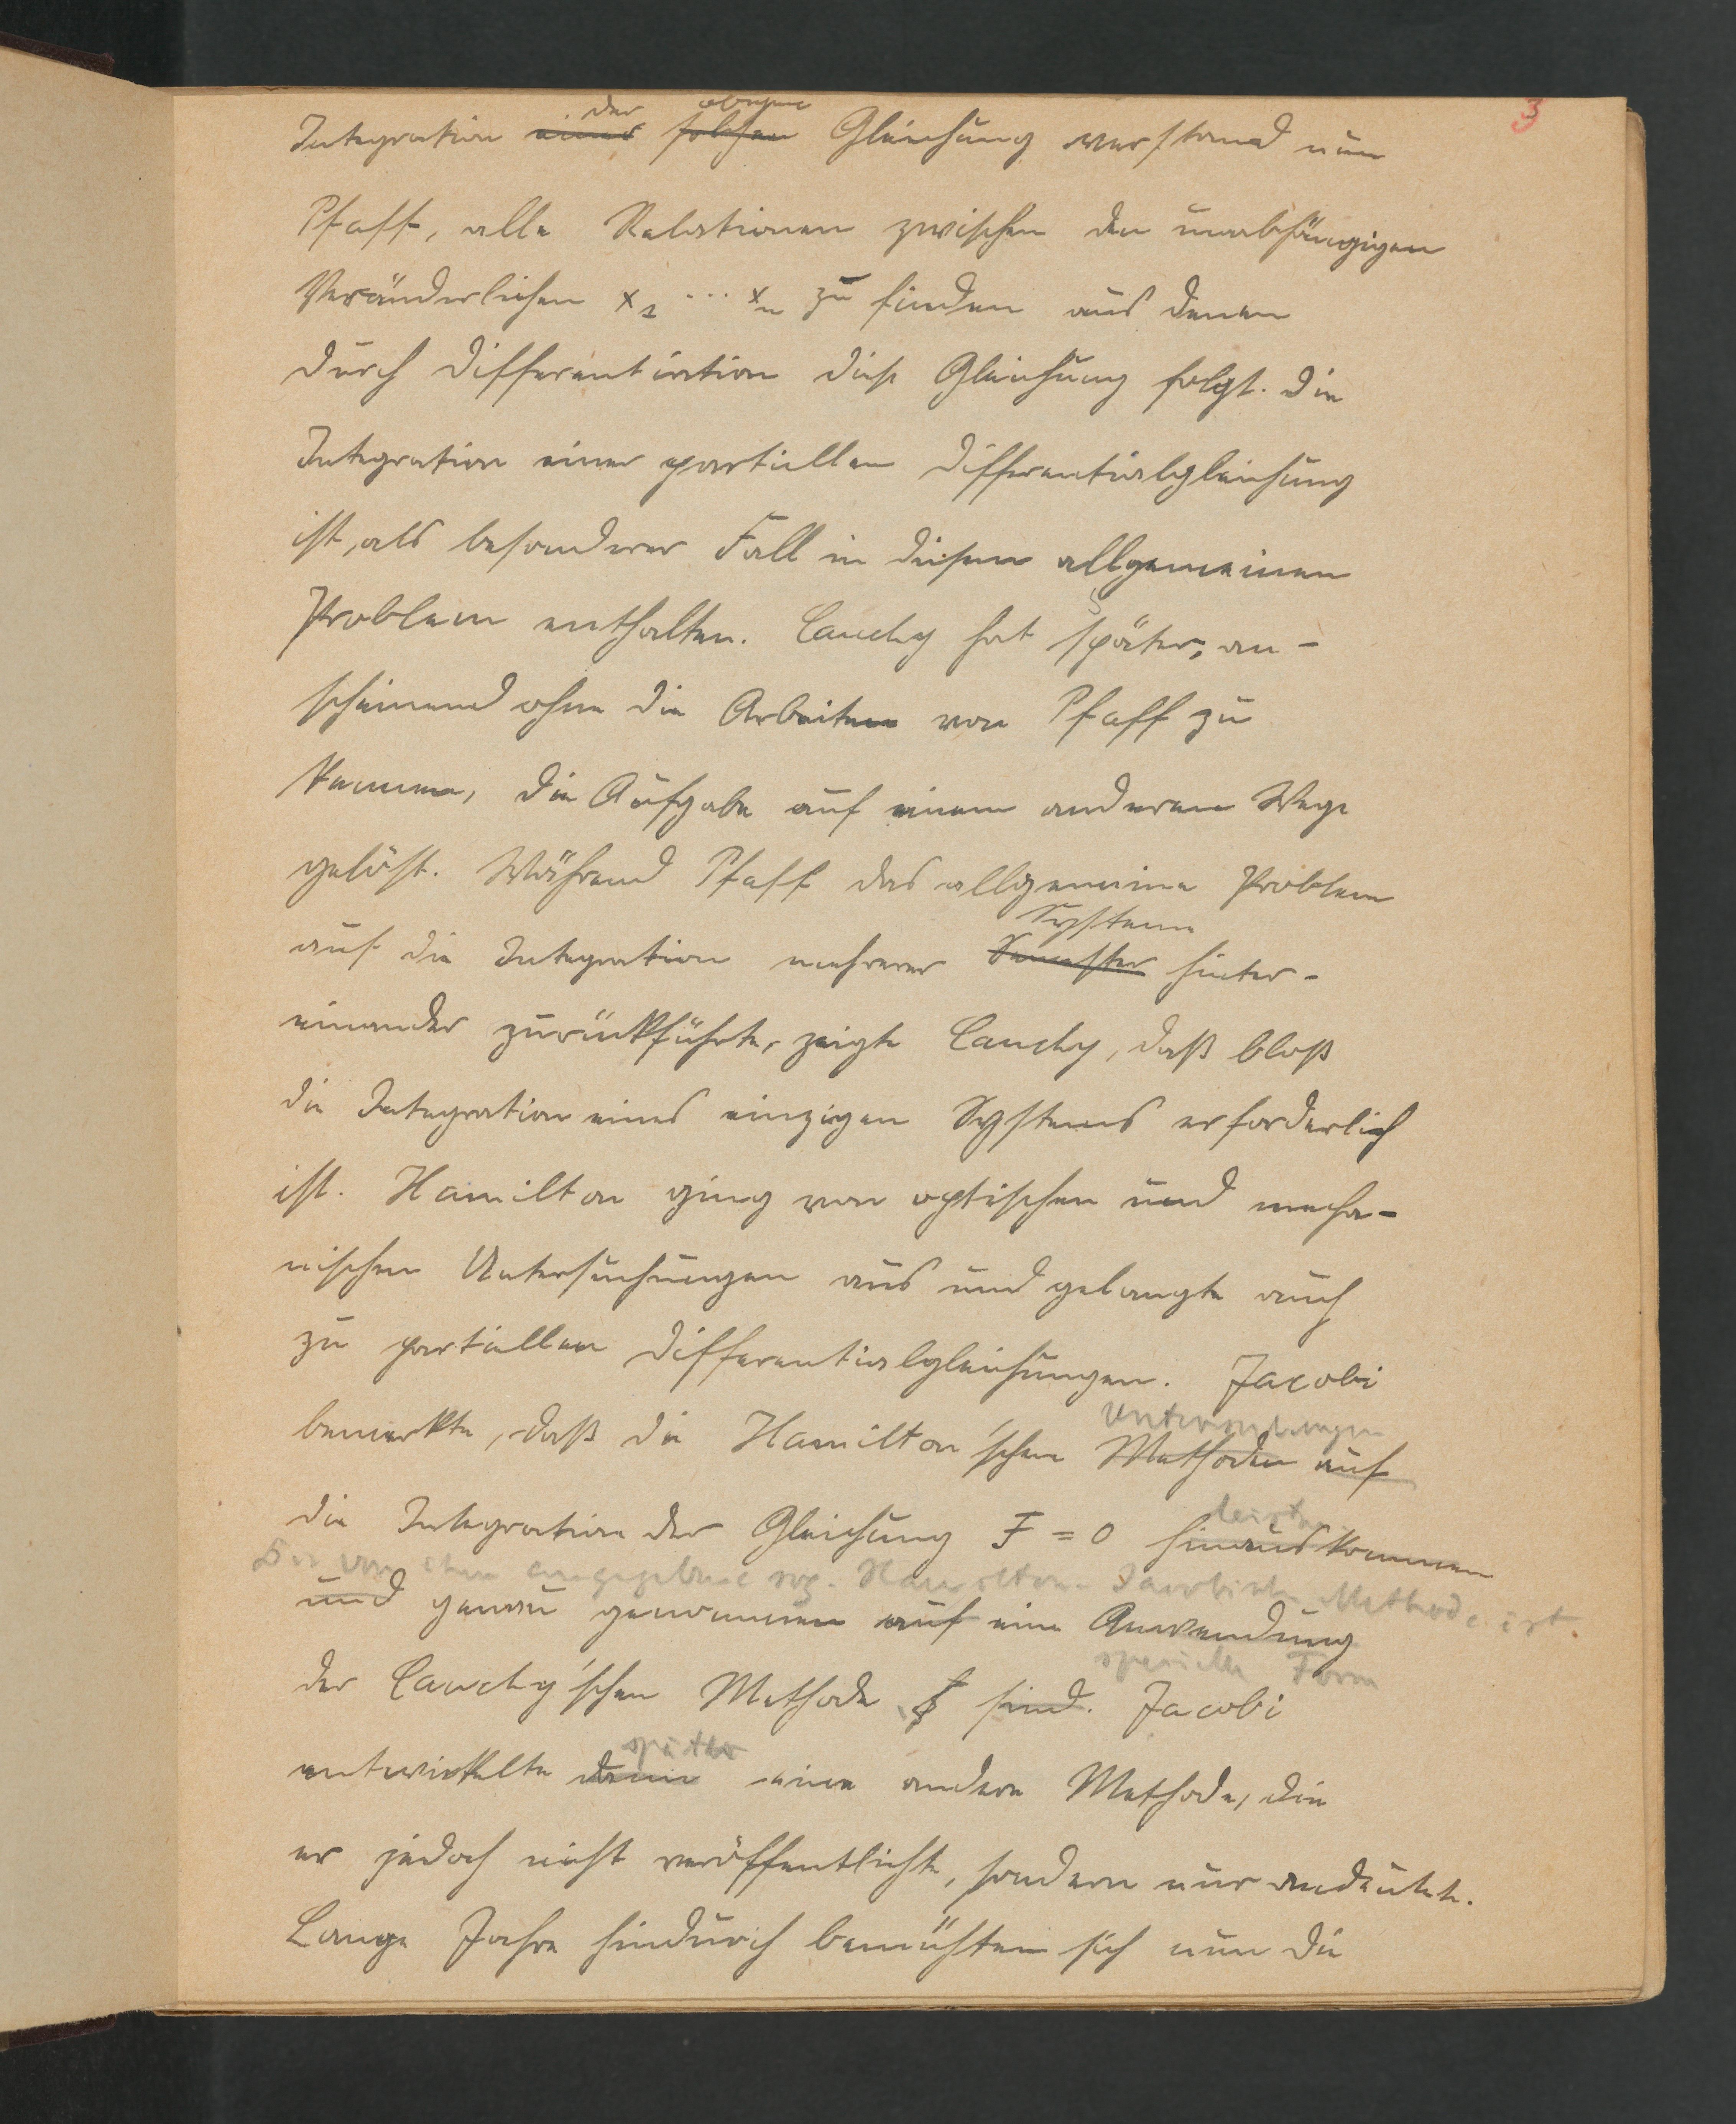 3
der obigen
Integration einer solchen Gleichung verstand nun
Pfaff, alle Relationen zwischen den unabhängigen
Veränderlichen x₁ ... xₙ zu finden aus denen
durch Differentiation diese Gleichung folgt. Die
Integration einer partiellen Differentialgleichung
ist, als besonderer Fall in diesem allgemeinen
Problem enthalten. Cauchy hat später, an-
scheinend ohne die Arbeiten von Pfaff zu
kennen, die Aufgabe auf einem anderen Wege
gelöst. Während Pfaff das allgemeine Problem
Systeme
auf die Integration mehrerer Semester hinter-
einander zurückführte, zeigte Cauchy, daß bloß
die Integration eines einzigen Systems erforderlich
ist. Hamilton ging von optischen und mecha-
nischen Untersuchungen aus und gelangte auch
zu partiellen Differentialgleichungen. Jacobi
Untersuchungen
bemerkte, daß die Hamilton'schen Methoden auf
leisten
die Integration der Gleichung F = 0 hinauskommen
Die von ihm angegebene sog. Hamilton-Jacobische Methode ist
und genau genommen auf eine Anwendung
spezielle Form
der Cauchy'schen Methode sind. Jacobi
später
entwickelte dann eine andere Methode, die
er jedoch nicht veröffentlichte, sondern nur andeutete.
Lange Jahre hindurch bemühten sich nun die